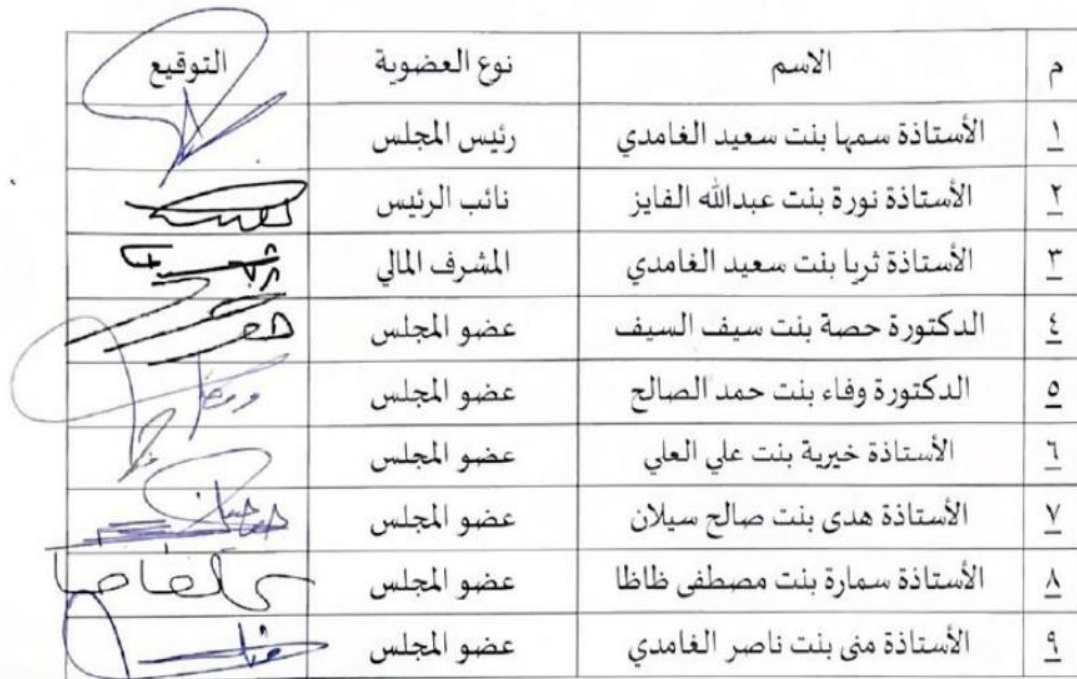 م الاسم نوع العضوية التوقيع
١ الأستاذة سمها بنت سعيد الغامدي رئيس المجلس
٢ الأستاذة نورة بنت عبدالله الفايز نائب الرئيس
٣ الأستاذة ثريا بنت سعيد الغامدي المشرف المالي
٤ الدكتورة حصة بنت سيف السيف عضو المجلس
٥ الدكتورة وفاء بنت حمد الصالح عضو المجلس
٦ الأستاذة خيرية بنت علي العلي عضو المجلس
٧ الأستاذة هدى بنت صالح سيلان عضو المجلس
٨ الأستاذة سمارة بنت مصطفى ظاظا عضو المجلس
٩ الأستاذة منى بنت ناصر الغامدي عضو المجلس